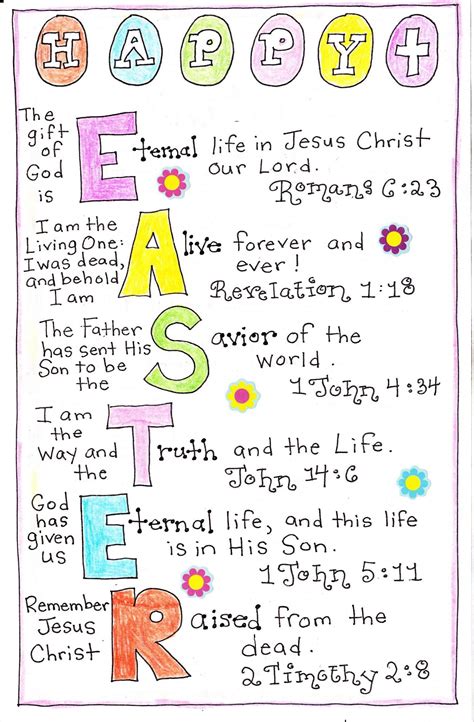 HAPPY
The gift of God is
Eternal life in Jesus Christ
our Lord.
Romans 6:23
I am the
Living One:
I was dead,
and behold
I am
Alive forever and
ever!
Revelation 1:18
The Father
has sent His
Son to be
the
Savior of the
world.
1 John 4:34
I am
the
Way and
the
Truth and the Life.
John 14:6
God
has
given
us
Eternal life, and this life
is in His Son.
1 John 5:11
Remember
Jesus
Christ
Raised from the
dead.
2 Timothy 2:8